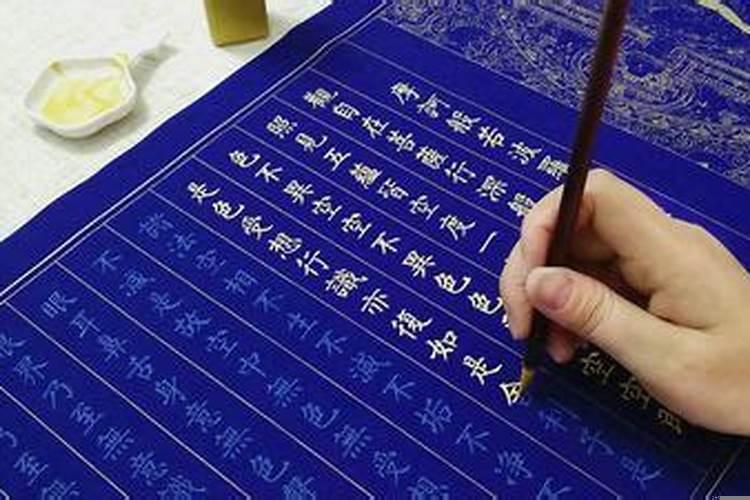 摩訶般若波羅
觀自在菩薩行深般
照見五蘊皆空度一
色不異空空不異色色空空即
是色受想行識亦復如是舍利子是
諸法空相不生不滅不垢不淨
不減是故空中無色無受想
眼耳鼻舌身意無色
界乃至無意識
乃至無